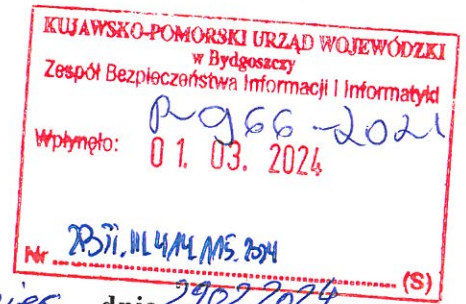 KUJAWSKO-POMORSKI URZĄD WOJEWÓDZKI
w Bydgoszczy
Zespół Bezpieczeństwa Informacji i Informatyki
R-966-2021
Wpłynęło: 01. 03. 2024
Nr
(S)
dnia 29022024